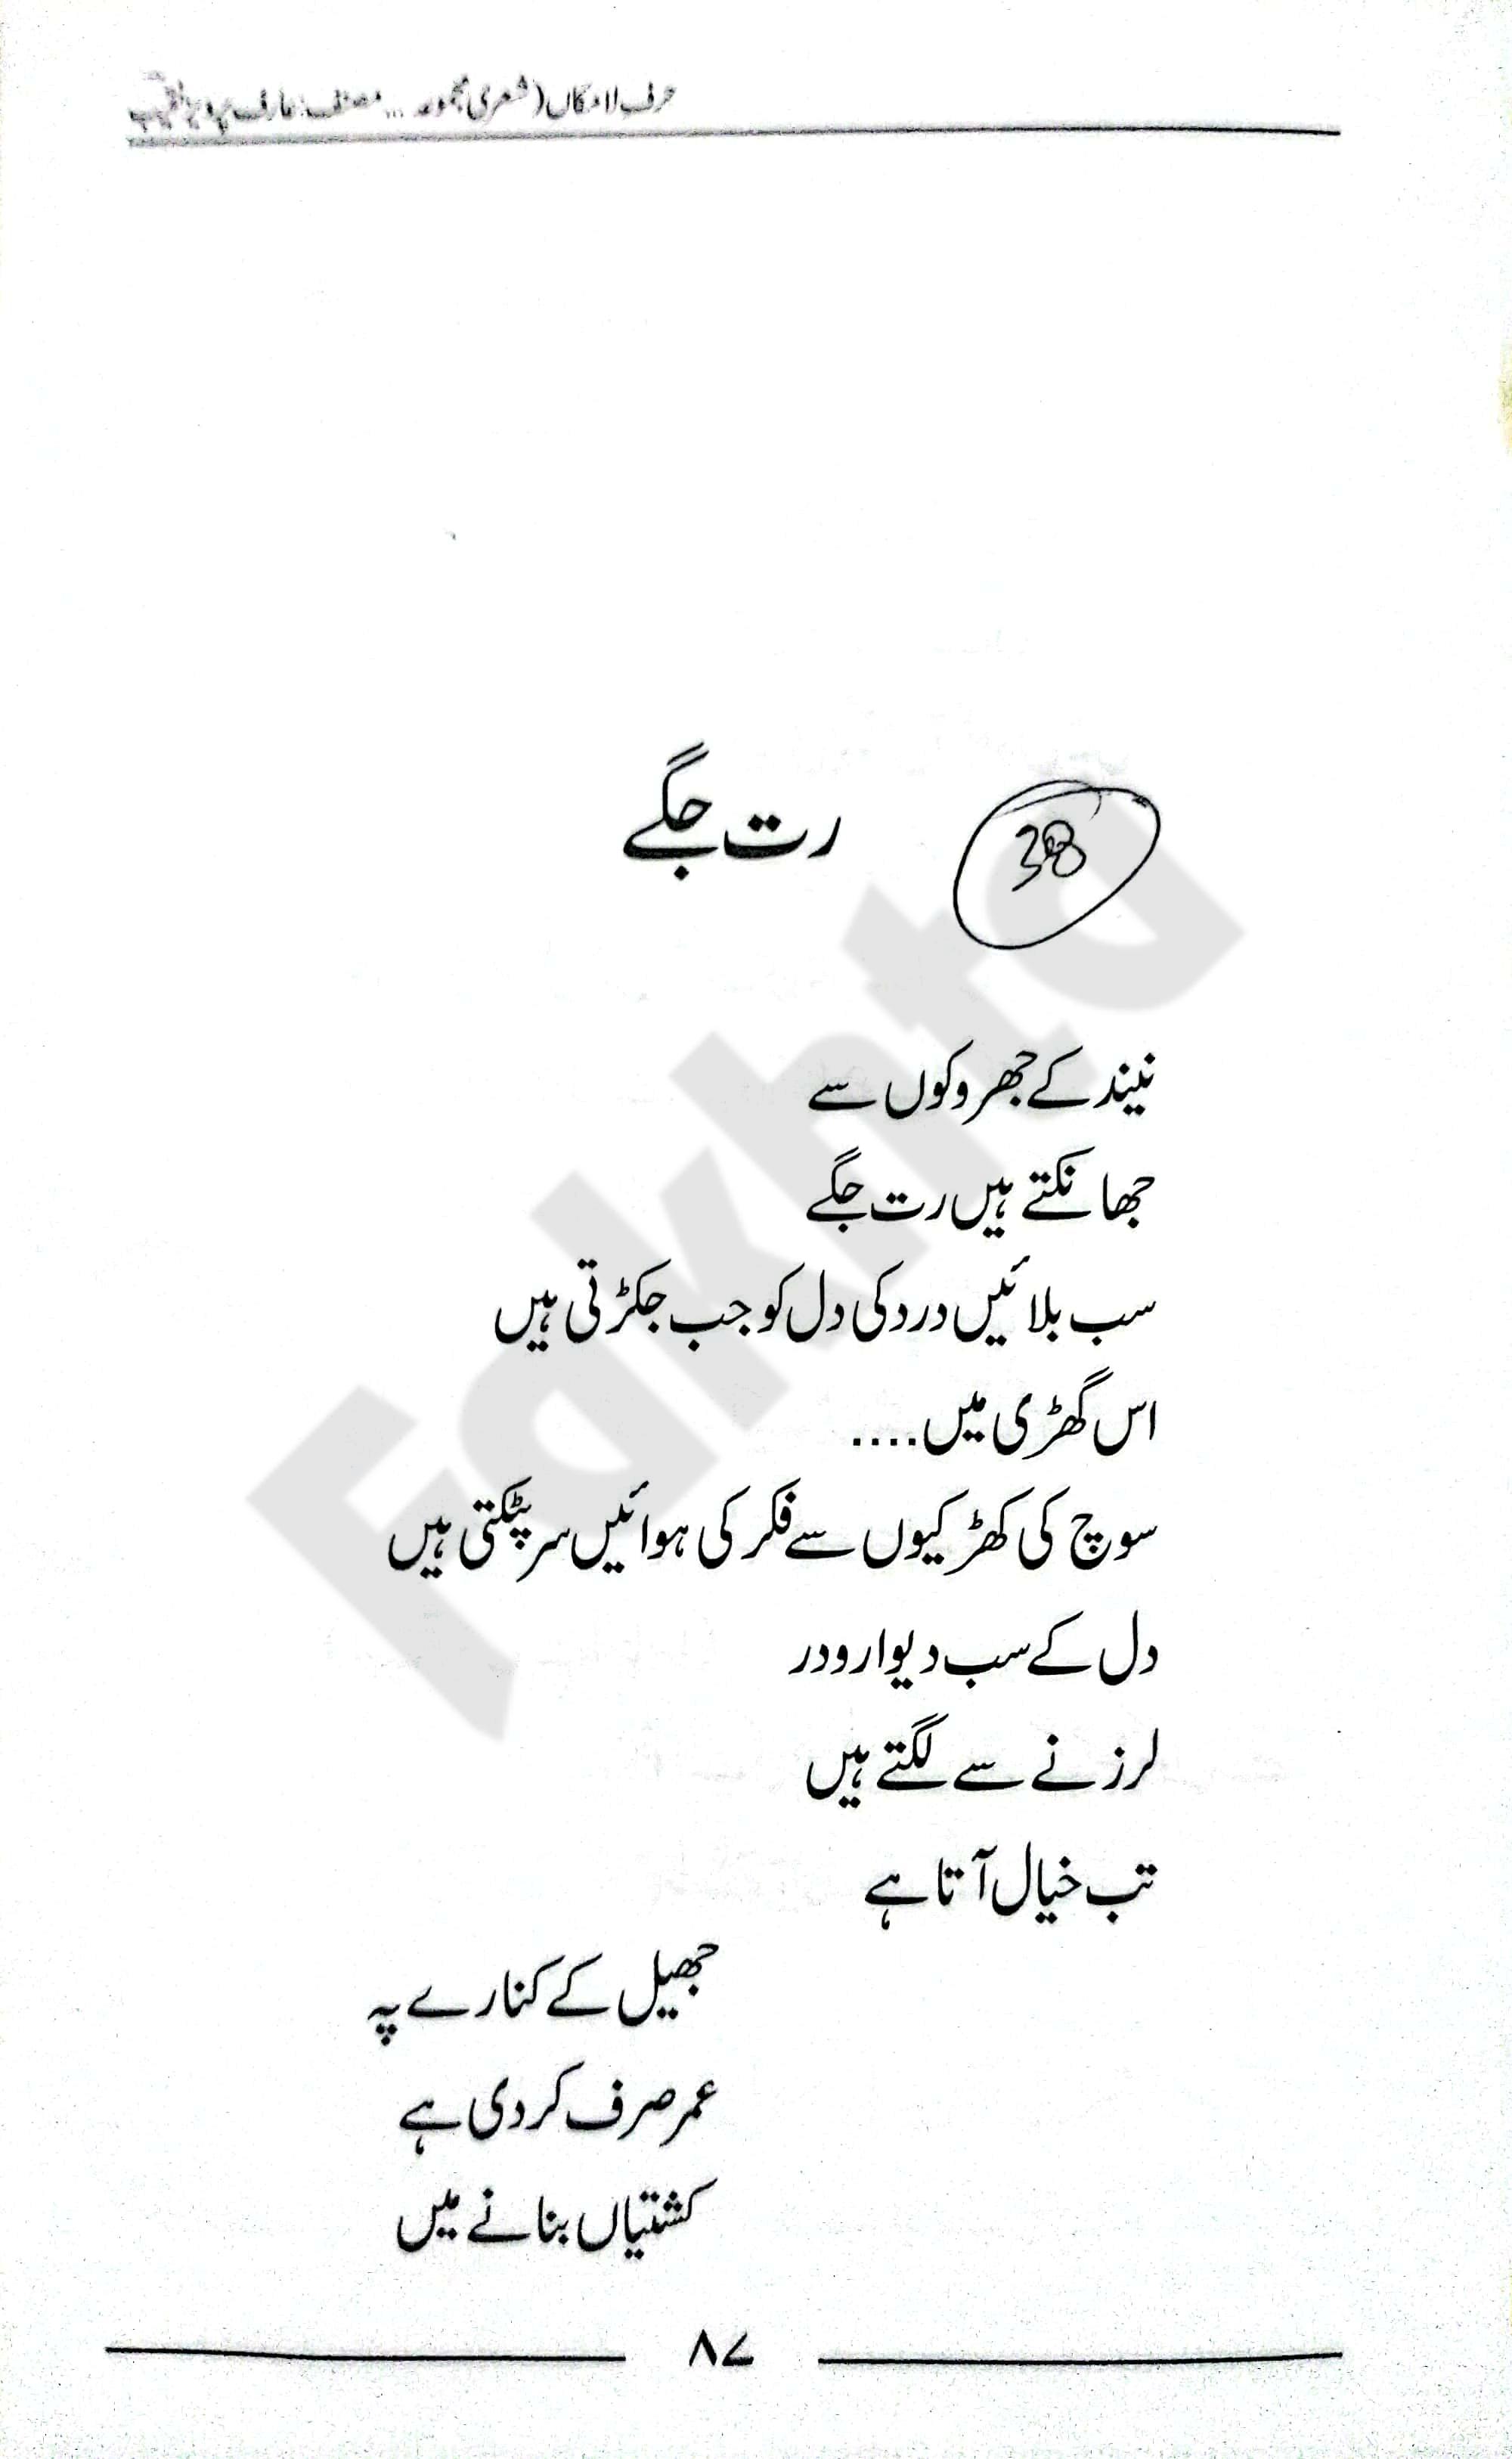 حرف لامکاں (شعری مجموعہ ... مصنف: عارف پرویز نقیب
رت جگے
38
نیند کے جھروکوں سے
جھانکتے ہیں رت جگے
سب بلائیں درد کی دل کو جب جکڑتی ہیں
اس گھڑی میں....
سوچ کی کھڑکیوں سے فکر کی ہوائیں سر پٹکتی ہیں
دل کے سب دیوار و در
لرزنے سے لگتے ہیں
تب خیال آتا ہے
جھیل کے کنارے پہ
عمر صرف کر دی ہے
کشتیاں بنانے میں
۸۷
Fakhta